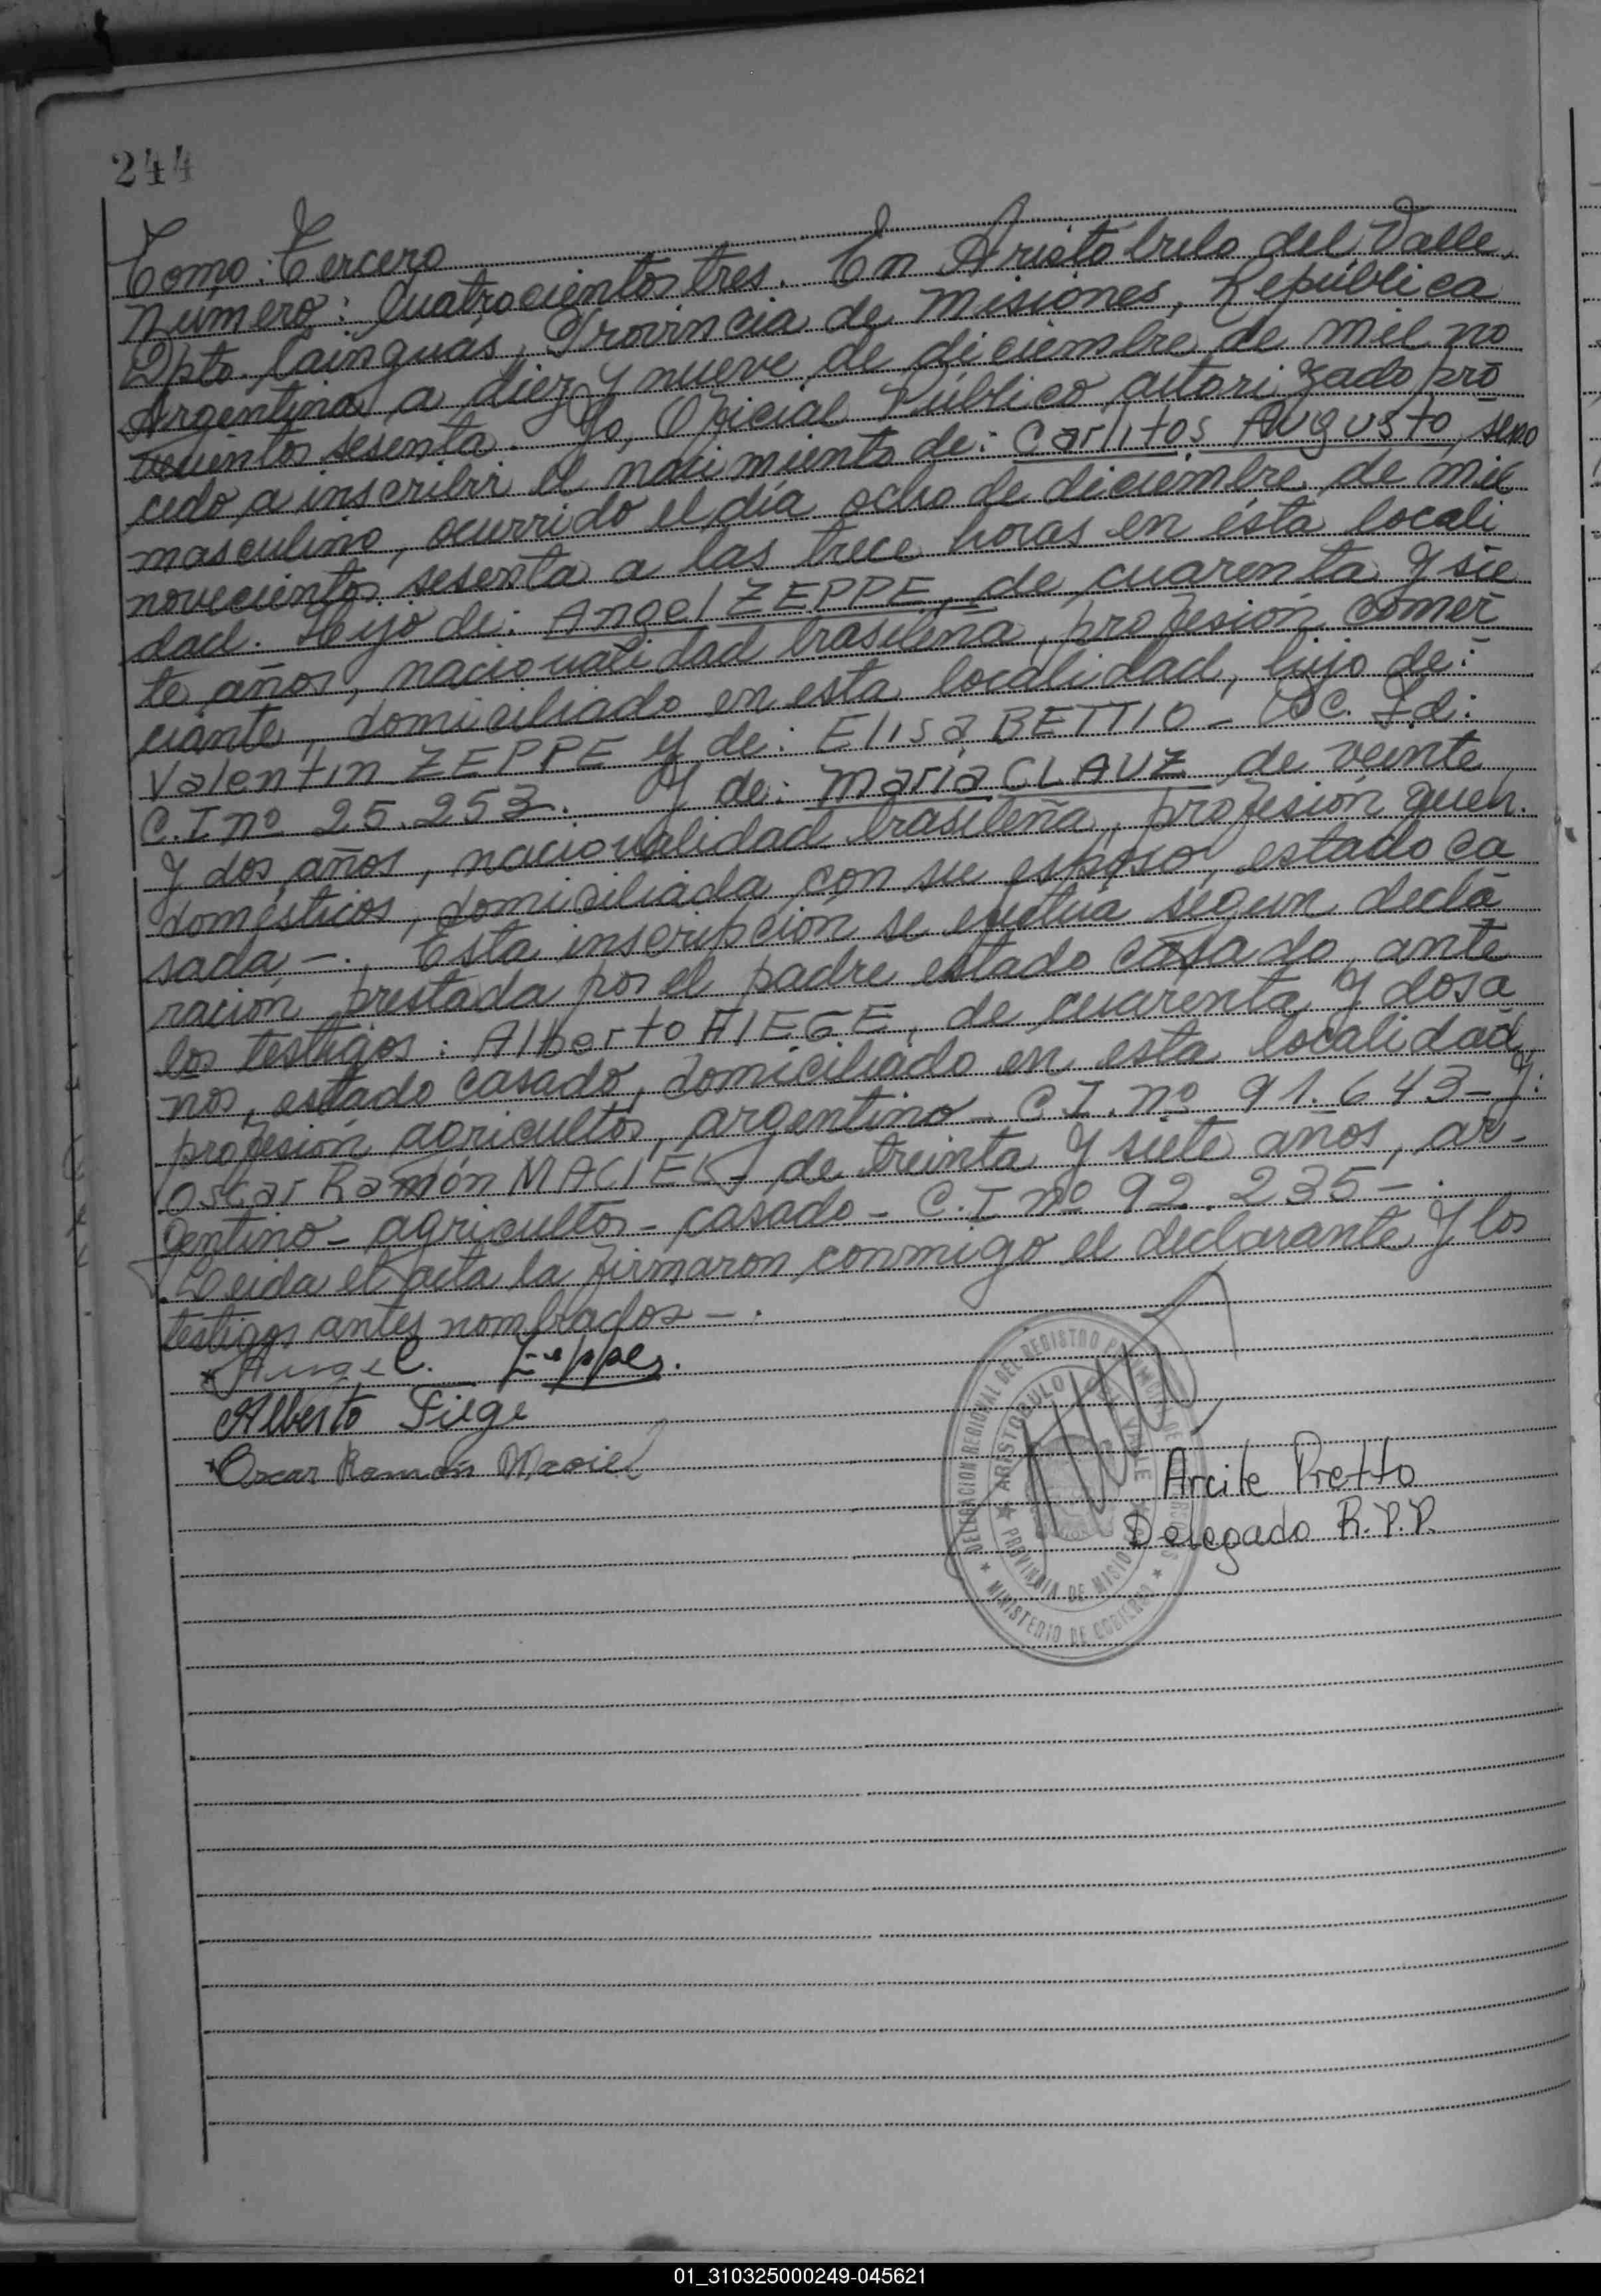 244
Tomo: Tercero
Número: Cuatrocientos tres. En Aristóbulo del Valle,
Dpto. Cainguás, Provincia de Misiones, República
Argentina a diez y nueve de diciembre de mil no
vecientos sesenta. Yo, Oficial Público autorizado pro
cedo a inscribir el nacimiento de: Carlitos Augusto, sexo
masculino, ocurrido el día ocho de diciembre de mil
novecientos sesenta a las trece horas en ésta locali
dad. Hijo de: Angel ZEPPE, de cuarenta y sie
te años, nacionalidad brasileña, profesión comer
ciante, domiciliado en esta localidad, hijo de:
Valentín ZEPPE y de: Elisa BETTIO - Doc. Id:
C.I nº 25.253. Y de: María CLAUZ de veinte
y dos años, nacionalidad brasileña, profesión queh.
domésticos, domiciliada con su esposo, estado ca
sada -. Esta inscripción se efectúa según decla
ración prestada por el padre estado casado, ante
los testigos: Alberto FIEGE, de cuarenta y dos a
ños, estado casado, domiciliado en esta localidad,
profesión agricultor, argentino - C.I. nº 91.643 - Y:
Oscar Ramón MACIEL, de treinta y siete años, ar-
gentino - agricultor - casado - C.I nº 92.235 -.
Leida el acta la firmaron conmigo el declarante y los
testigos antes nombrados -.
Angel. Zeppe.
Alberto Fiege
Oscar Ramón Maciel
DELEGACION REGIONAL DEL REGISTRO PROVINCIAL DE LAS PERSONAS
ARISTOBULO DEL VALLE
PROVINCIA DE MISIONES
MINISTERIO DE GOBIERNO
Arcile Pretto
Delegado R.P.P.
01_310325000249-045621